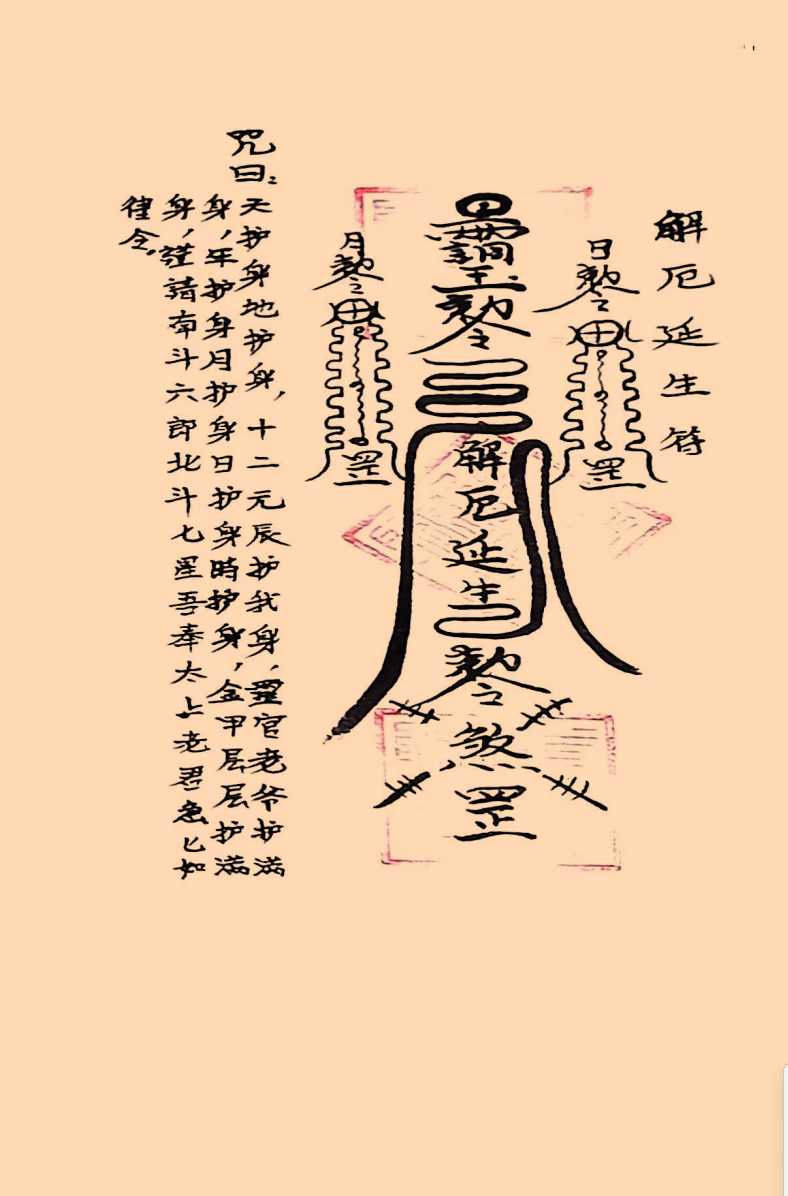 解厄延生符
日敕令
罡
玉敕令
解厄延生
敕令
煞
罡
月敕令
罡
咒曰:
天护身地护身,十二元辰护我身,靈官老爷护满
身,年护身月护身日护身時护身,金甲层层护满
身,谨請南斗六郎北斗七星吾奉太上老君急匕如
律令。